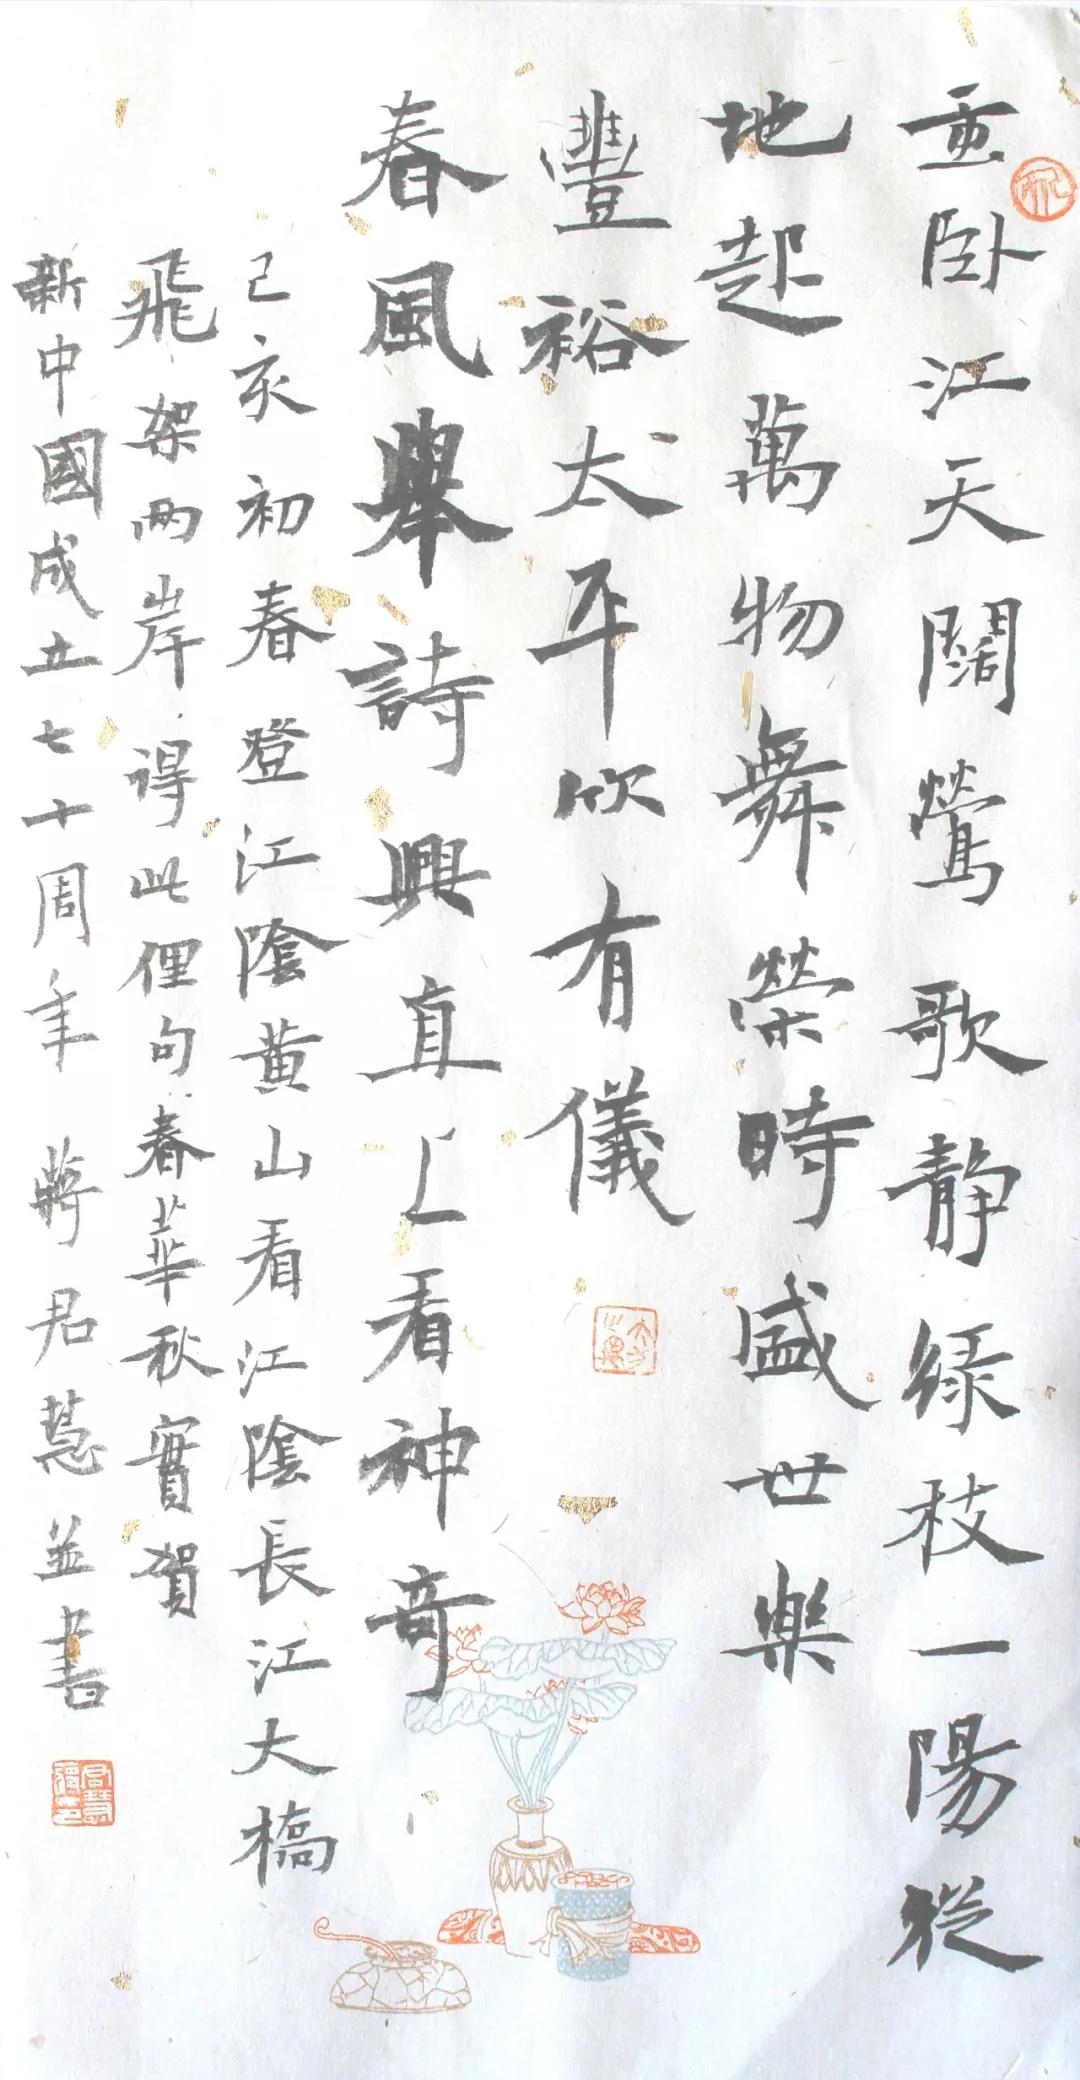 亙卧江天闊鶯歌静緑枝一陽從
地起萬物舞榮時盛世樂
豐裕太平欣有儀
春風舉詩興直上看神奇
己亥初春登江陰黄山看江陰長江大橋
飛架两岸得此俚句春華秋實賀
新中國成立七十周年 蔣君慧並書